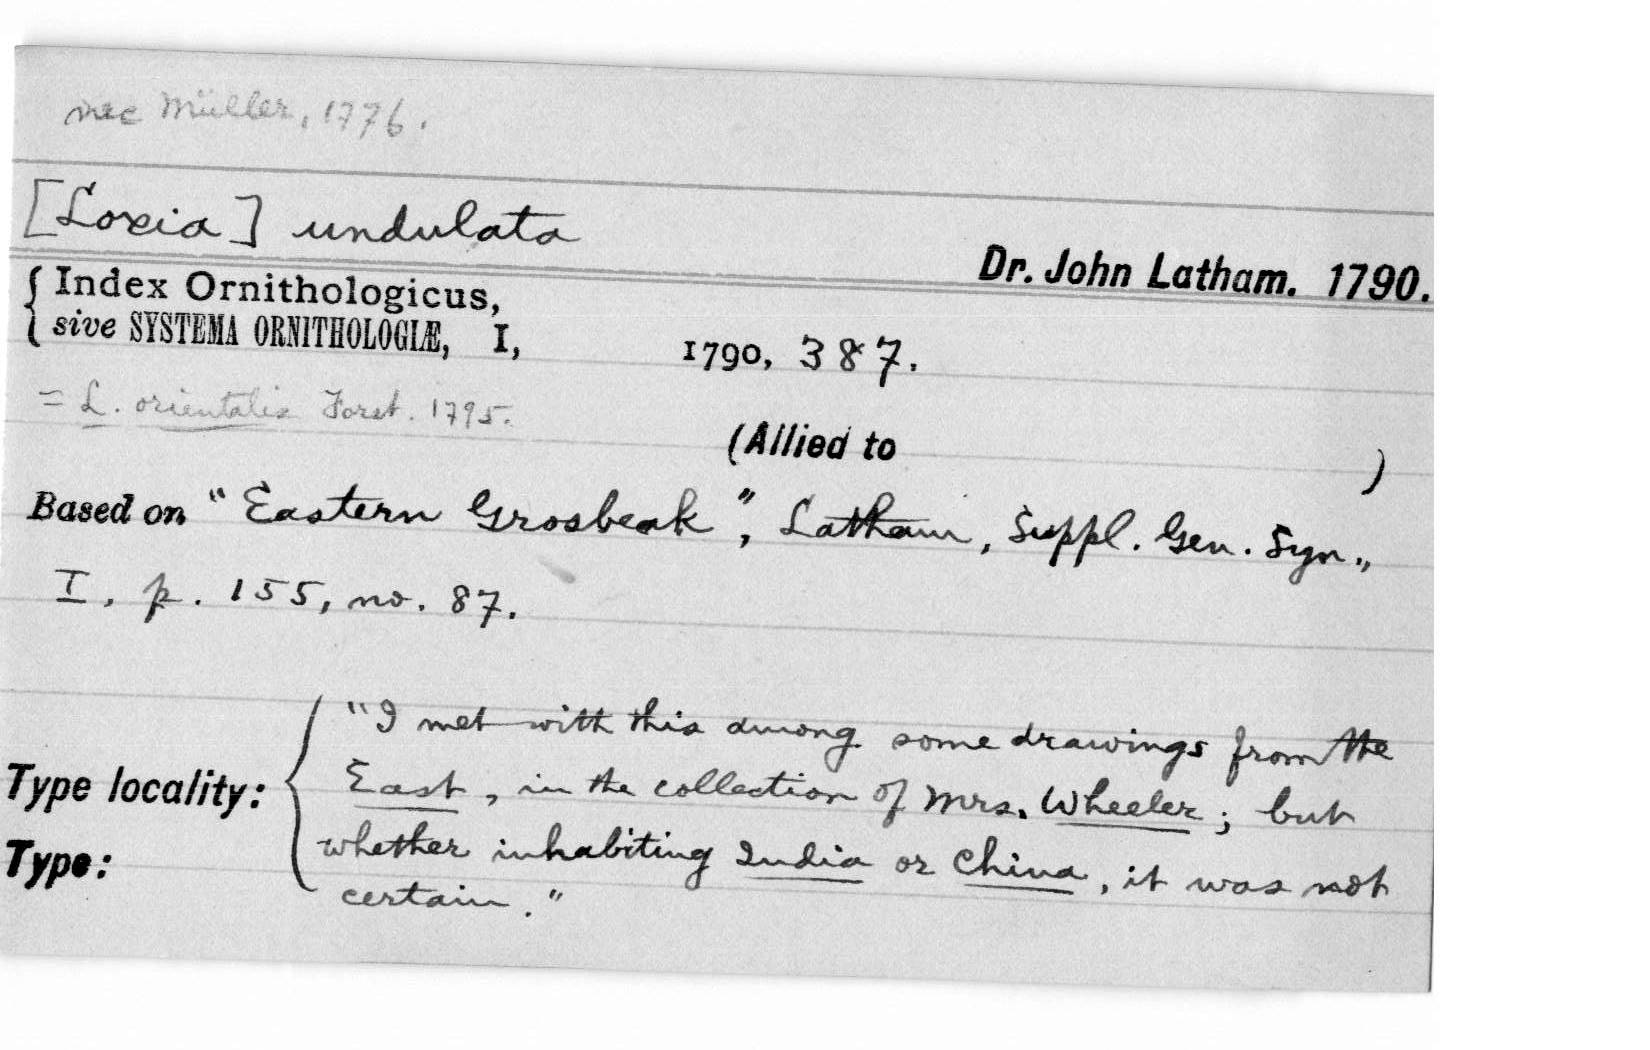 nec Müller, 1776.
[Loxia] undulata
Dr. John Latham. 1790.
Index Ornithologicus,
sive SYSTEMA ORNITHOLOGIÆ, I, 1790, 387.
= L. orientalis Forst. 1795.
(Allied to )
Based on "Eastern Grosbeak", Latham, Suppl. Gen. Syn.,
I, p. 155, no. 87.
"I met with this among some drawings from the
Type locality: East, in the collection of Mrs. Wheeler; but
Type: whether inhabiting India or China, it was not
certain."